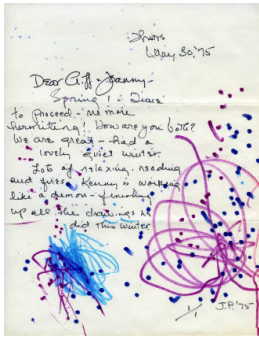 Thurs
May 30, '75
Dear Cliff & Joanny -
Spring! Time
to proceed - no more
hermiting! How are you both?
We are great - had a
lovely quiet winter.
Lots of relaxing, reading
and fires. Kenny is working
like a demon - finishing
up all the drawings he
did this winter.
1/1
J.P. '75